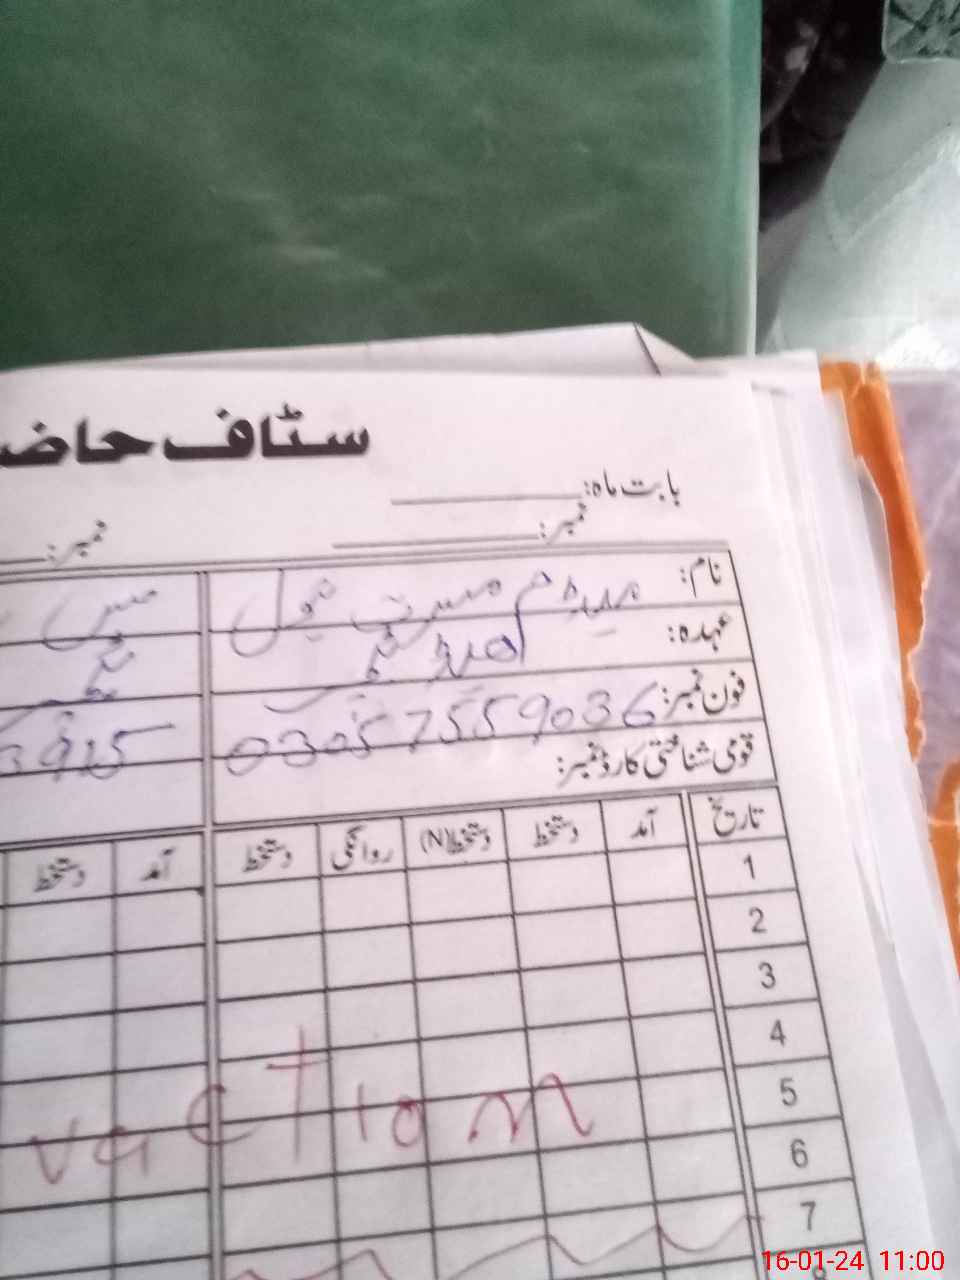 سٹاف حاض
بابت ماہ:
نمبر: نمبر:
نام: میڈم مسرت بتول مس
عہدہ: ہیڈ ٹیچر ٹیچر
فون نمبر: 03057559036 3915
قومی شناختی کارڈ نمبر:
تاریخ آمد دستخط دستخط(N) روانگی دستخط آمد دستخط
1
2
3
4
5
vaction
6
7
16-01-24 11:00